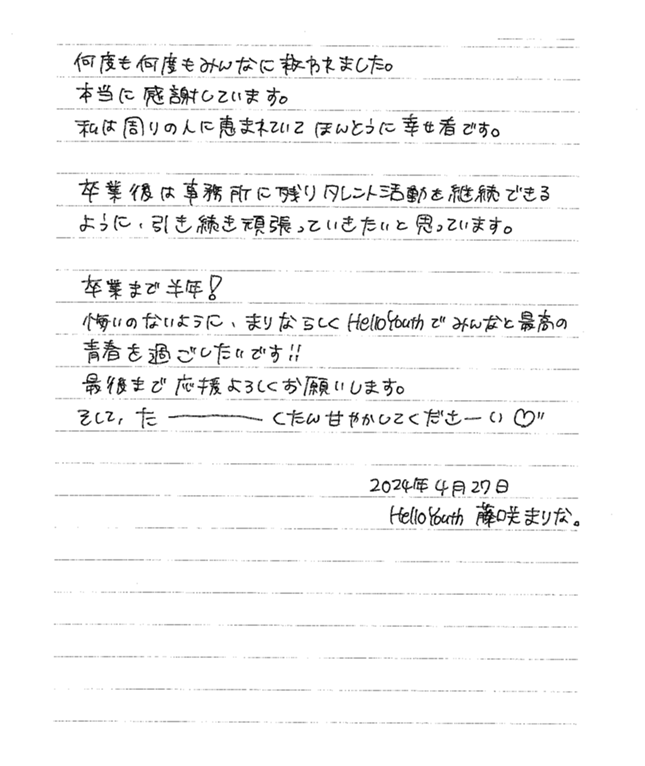 何度も何度もみんなに救われました。
本当に感謝しています。
私は周りの人に恵まれていて ほんとうに幸せ者です。
卒業後は事務所に残りタレント活動を継続できる
ように、引き続き頑張っていきたいと思っています。
卒業まで半年!
悔いのないように、まりならしくHelloYouthでみんなと最高の
青春を過ごしたいです!!
最後まで応援よろしくお願いします。
そして、た――――くたん甘やかしてくださーい♡"
2024年4月27日
HelloYouth 藤咲まりな。